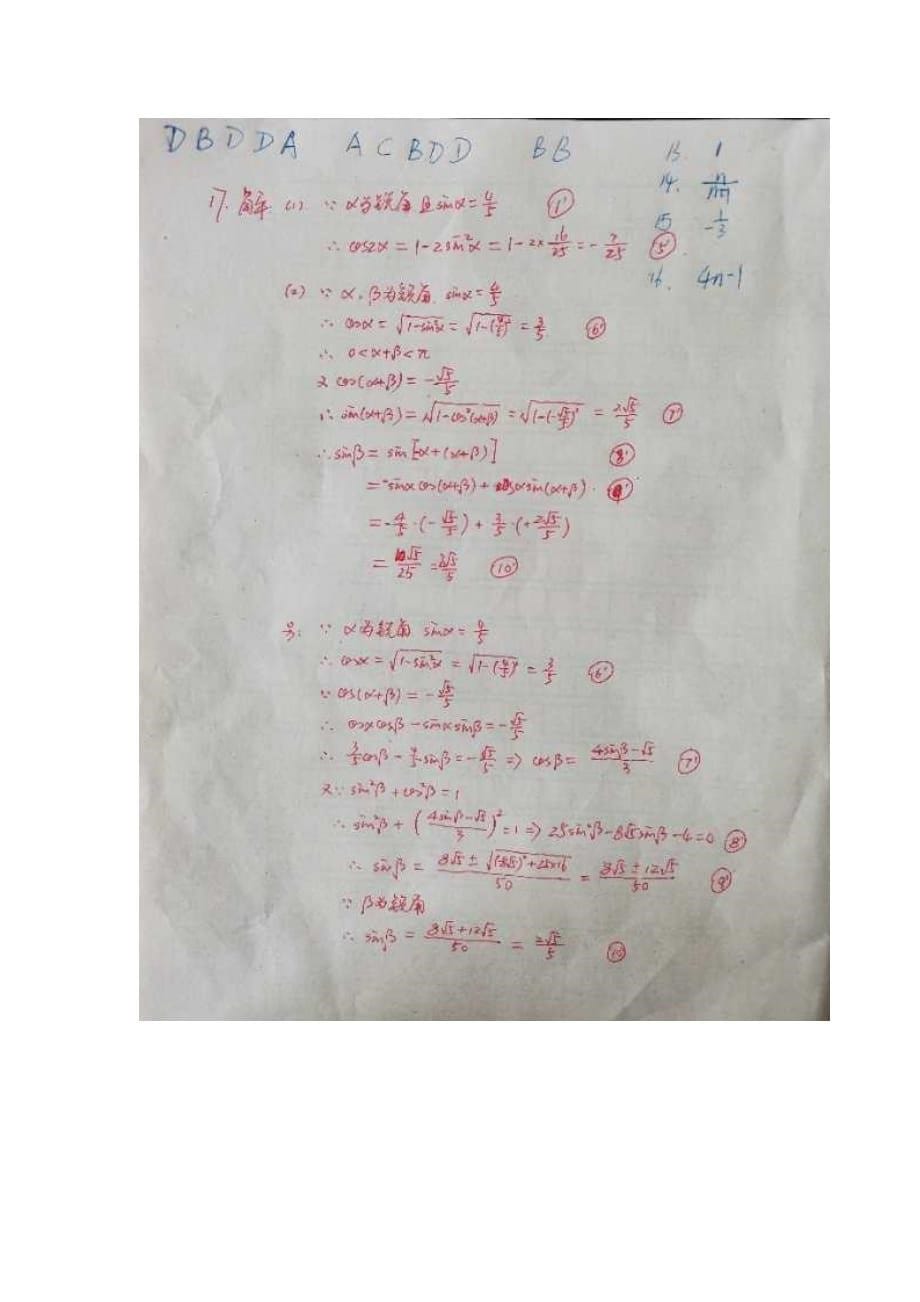 DBDDA ACBDD BB
13 1
14. n/(n+1)
15 -1/3
16. 4n-1
17. 解: (1) ∵ α为锐角 且 sinα = 4/5 ①'
∴ cos2α = 1-2sin²α = 1-2×16/25 = -7/25 ⑤'
(2) ∵ α、β为锐角, sinα = 4/5
∴ cosα = √(1-sin²α) = √(1-(4/5)²) = 3/5 ⑥'
∴ 0<α+β<π
又 cos(α+β) = -√5/5
∴ sin(α+β) = √(1-cos²(α+β)) = √(1-(-√5/5)²) = 2√5/5 ⑦'
∴ sinβ = sin[-α+(α+β)] ⑧'
= -sinα cos(α+β) + cosα sin(α+β). ⑨'
= -4/5·(-√5/5) + 3/5·(+2√5/5)
= 10√5/25 = 2√5/5 ⑩'
∵ α为锐角 sinα = 4/5
∴ cosα = √(1-sin²α) = √(1-(4/5)²) = 3/5 ⑥'
∵ cos(α+β) = -√5/5
∴ cosαcosβ - sinαsinβ = -√5/5
∴ 3/5cosβ - 4/5sinβ = -√5/5 ⇒ cosβ = (4sinβ-√5)/3 ⑦'
又∵ sin²β + cos²β = 1
∴ sin²β + ((4sinβ-√5)/3)² = 1 ⇒ 25sin²β-8√5sinβ-4=0 ⑧'
∴ sinβ = (8√5 ± √((-8√5)²+25×16))/50 = (8√5 ± 12√5)/50 ⑨'
∵ β为锐角
∴ sinβ = (8√5+12√5)/50 = 2√5/5 ⑩